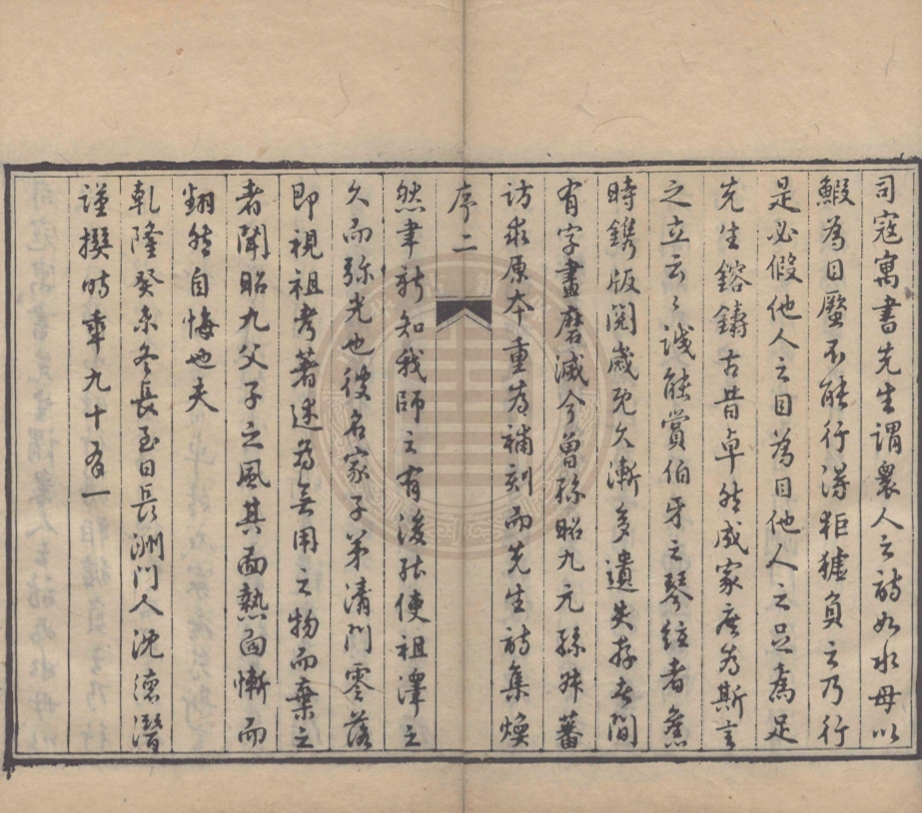 司寇寓書先生謂衆人之詩如水母以
鰕為目蟨不能行得駏驉負之乃行
是必假他人之目為目他人之足為足
先生鎔鑄古昔卓然成家庶為斯言
之立云云誠能賞伯牙之琴絃者舊
時鐫版閱歲既久漸多遺失存者間
有字畫磨滅今曾孫昭九元孫蕃
訪求原本重為補刻而先生詩集煥
序 二
然聿新知我師之有後能使祖澤之
久而弥光也彼名家子弟清門零落
即視祖考著述為無用之物而棄之
者聞昭九父子之風其面熱面慚而
翻然自悔也夫
乾隆癸未冬長至日長洲門人沈德潛
謹撰時年九十有一